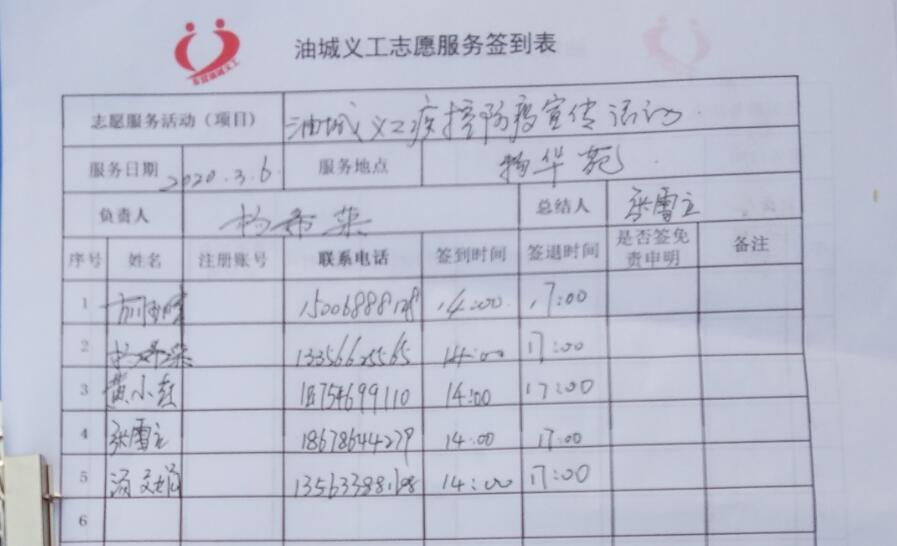 油城义工志愿服务签到表
志愿服务活动（项目） 油城义工疫控防疫宣传活动
服务日期 2020.3.6 服务地点 杨华苑
负责人 杨希荣 总结人 张雪立
序号 姓名 注册账号 联系电话 签到时间 签退时间 是否签免责申明 备注
1 14:00 17:00
2 13356625565 14:00 17:00
3 黄小 18754699110 14:00 17:00
4 张雪立 18678644279 14:00 17:00
5 14:00 17:00
6